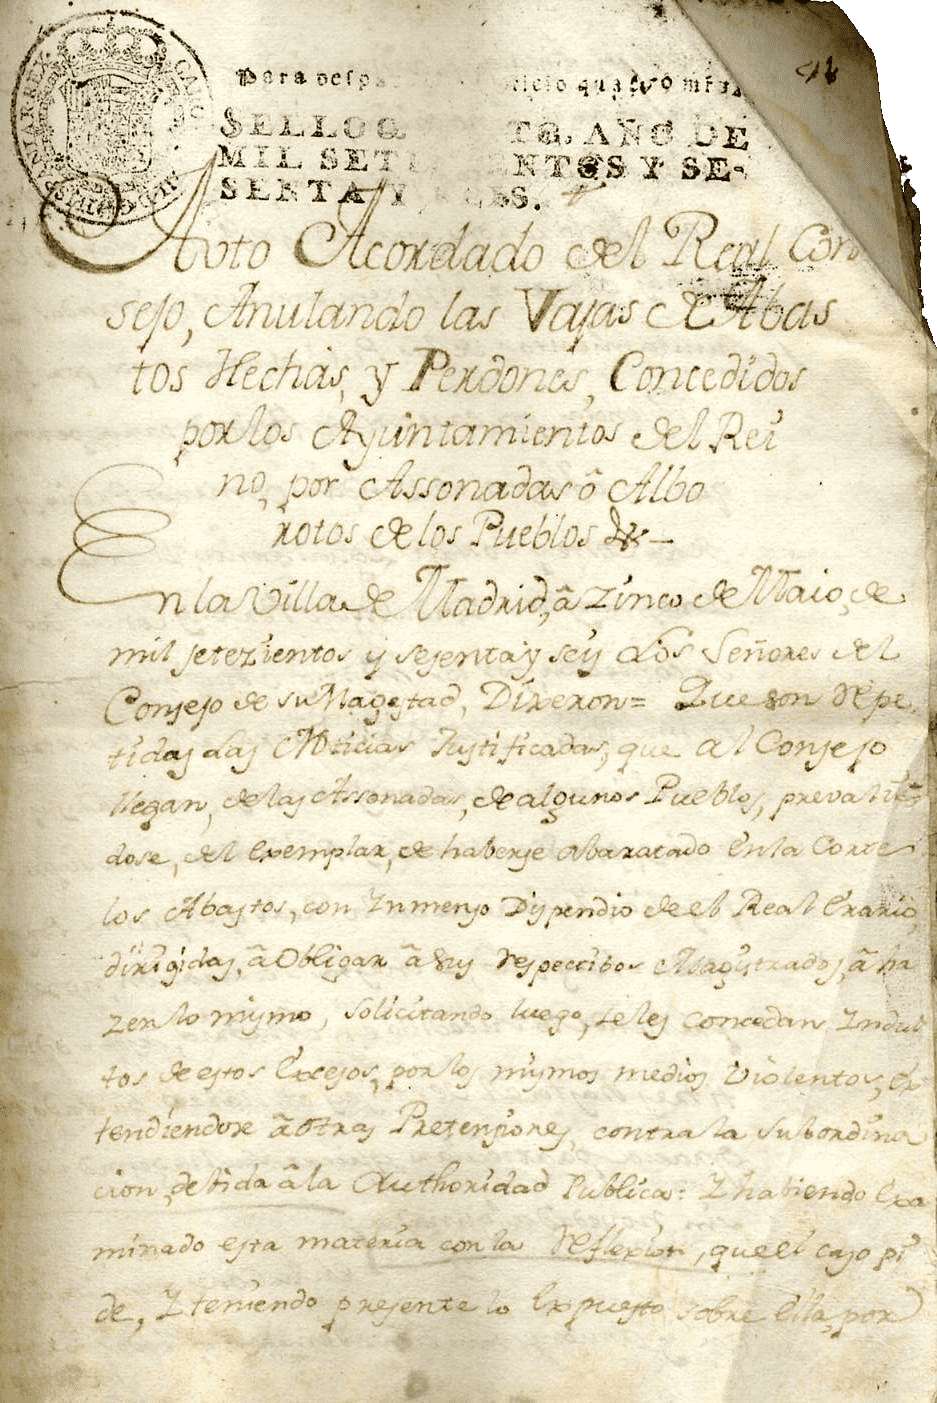 42
Para
SELLO Q TO, AÑO DE
MIL SETE NTOS Y SE-
SENTA Y
Auto Acordado del Real Con
sejo, Anulando las Vajas de Abas
tos Hechas, y Perdones, Concedidos
por los Ayuntamientos del Rei
no, por Assonadas ô Albo
rotos de los Pueblos &-
En la Villa de Madrid, â zinco de Maio, de
mil setezientos y sesenta y seis los Señores del
Consejo de su Magestad, Dixeron= Que son repe
tidas las Noticias Justificadas, que al Consejo
llegan, de las Assonadas, de algunos Pueblos, prevalien
dose, del exemplar, de haberse abaratado en la Corte
los Abastos, con Inmenso Dispendio de el Real Erario,
dirigidas, â Obligar â sus respectibos Magistrados, â ha
zer lo mismo, solicitando luego, se les concedan Indul
tos de estos Excesos, por los mismos medios violentos, ex
tendiendose â otras Pretensiones, contra la subordina
cion, debida â la Authoridad Publica: Y habiendo exa
minado esta materia con la reflexion, que el caso pi
de, Y teniendo presente lo Expuesto sobre ella, por